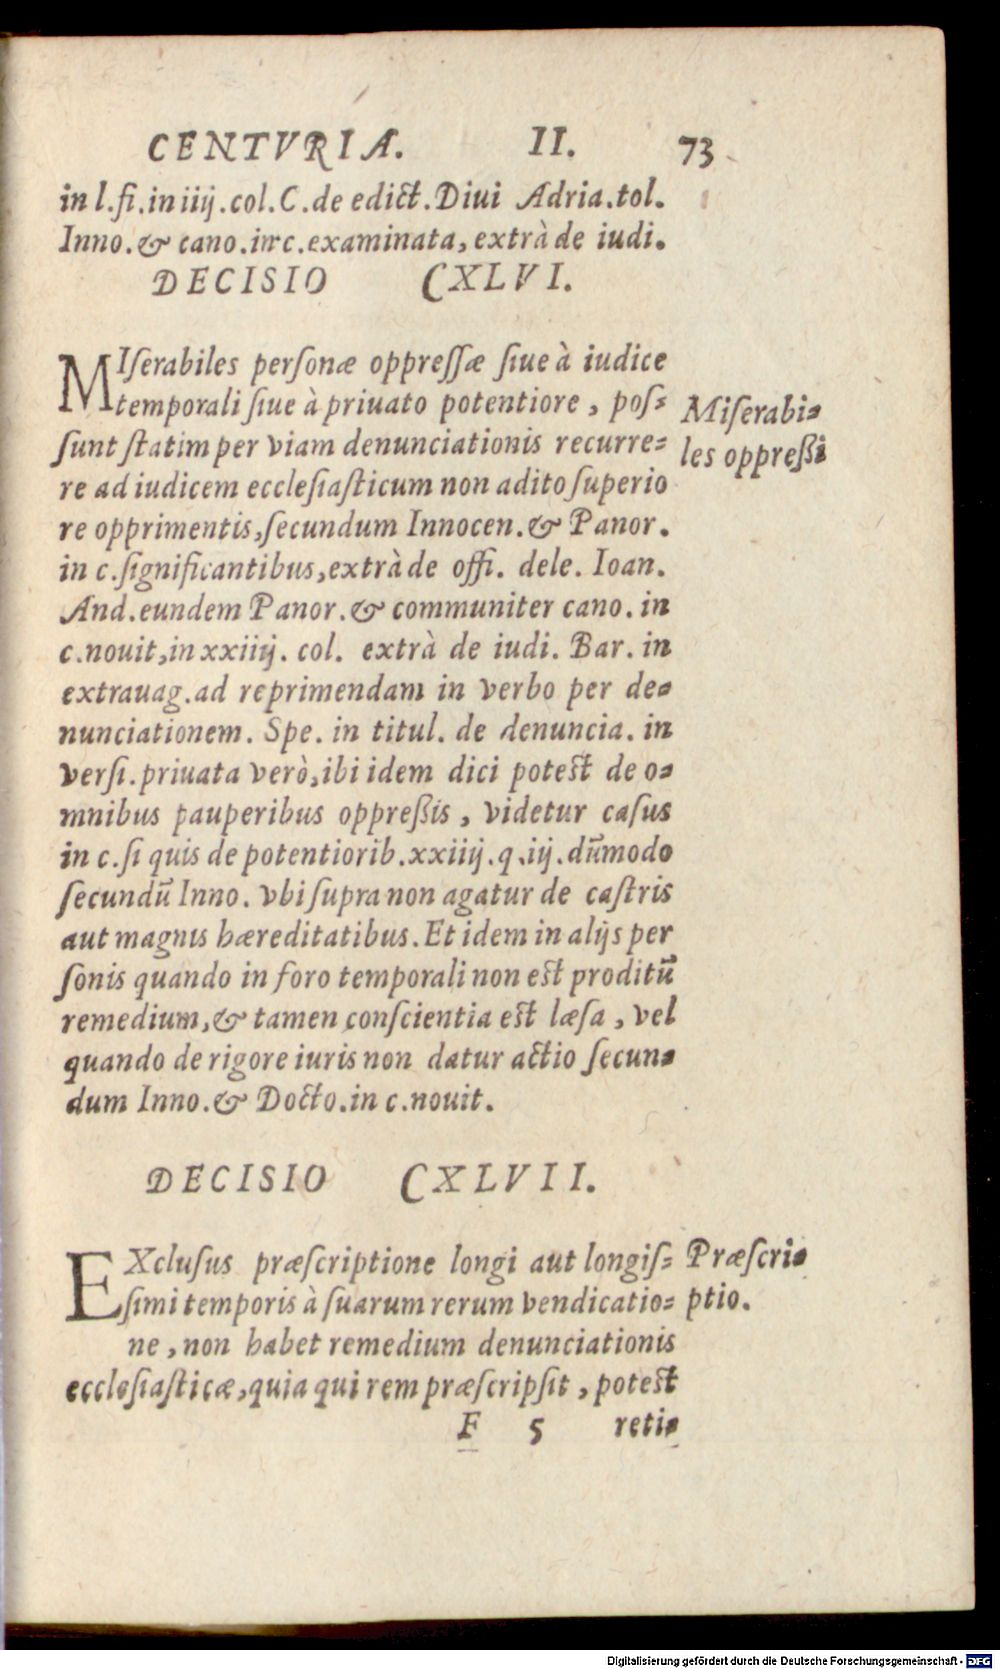 CENTVRIA. II. 73
in l.fi.in iiij.col.C.de edict.Diui Adria.tol.
Inno.& cano.in c.examinata, extrà de iudi.
DECISIO CXLVI.
MIſerabiles perſonæ oppreſſæ ſiue à iudice
temporali ſiue à priuato potentiore, poſ=
ſunt ſtatim per viam denunciationis recurre=
re ad iudicem eccleſiaſticum non adito ſuperio
re opprimentis, ſecundum Innocen.& Panor.
in c.ſignificantibus, extrà de offi. dele. Ioan.
And.eundem Panor.& communiter cano. in
c.nouit, in xxiiij. col. extrà de iudi. Bar. in
extrauag.ad reprimendam in verbo per de=
nunciationem. Spe. in titul. de denuncia. in
verſi.priuata verò, ibi idem dici poteſt de o=
mnibus pauperibus oppreßis, videtur caſus
in c.ſi quis de potentiorib.xxiiij.q.ij.dūmodo
ſecundū Inno. vbi ſupra non agatur de caſtris
aut magnis hæreditatibus. Et idem in alijs per
ſonis quando in foro temporali non eſt proditū
remedium, & tamen conſcientia eſt læſa, vel
quando de rigore iuris non datur actio ſecun=
dum Inno.& Docto.in c.nouit.
Miſerabi=
les oppreßi
DECISIO CXLVII.
EXcluſus præſcriptione longi aut longiſ=
ſimi temporis à ſuarum rerum vendicatio=
ne, non habet remedium denunciationis
eccleſiaſticæ, quia qui rem præſcripſit, poteſt
Præſcri=
ptio.
F 5 reti=
Digitalisierung gefördert durch die Deutsche Forschungsgemeinschaft - DFG